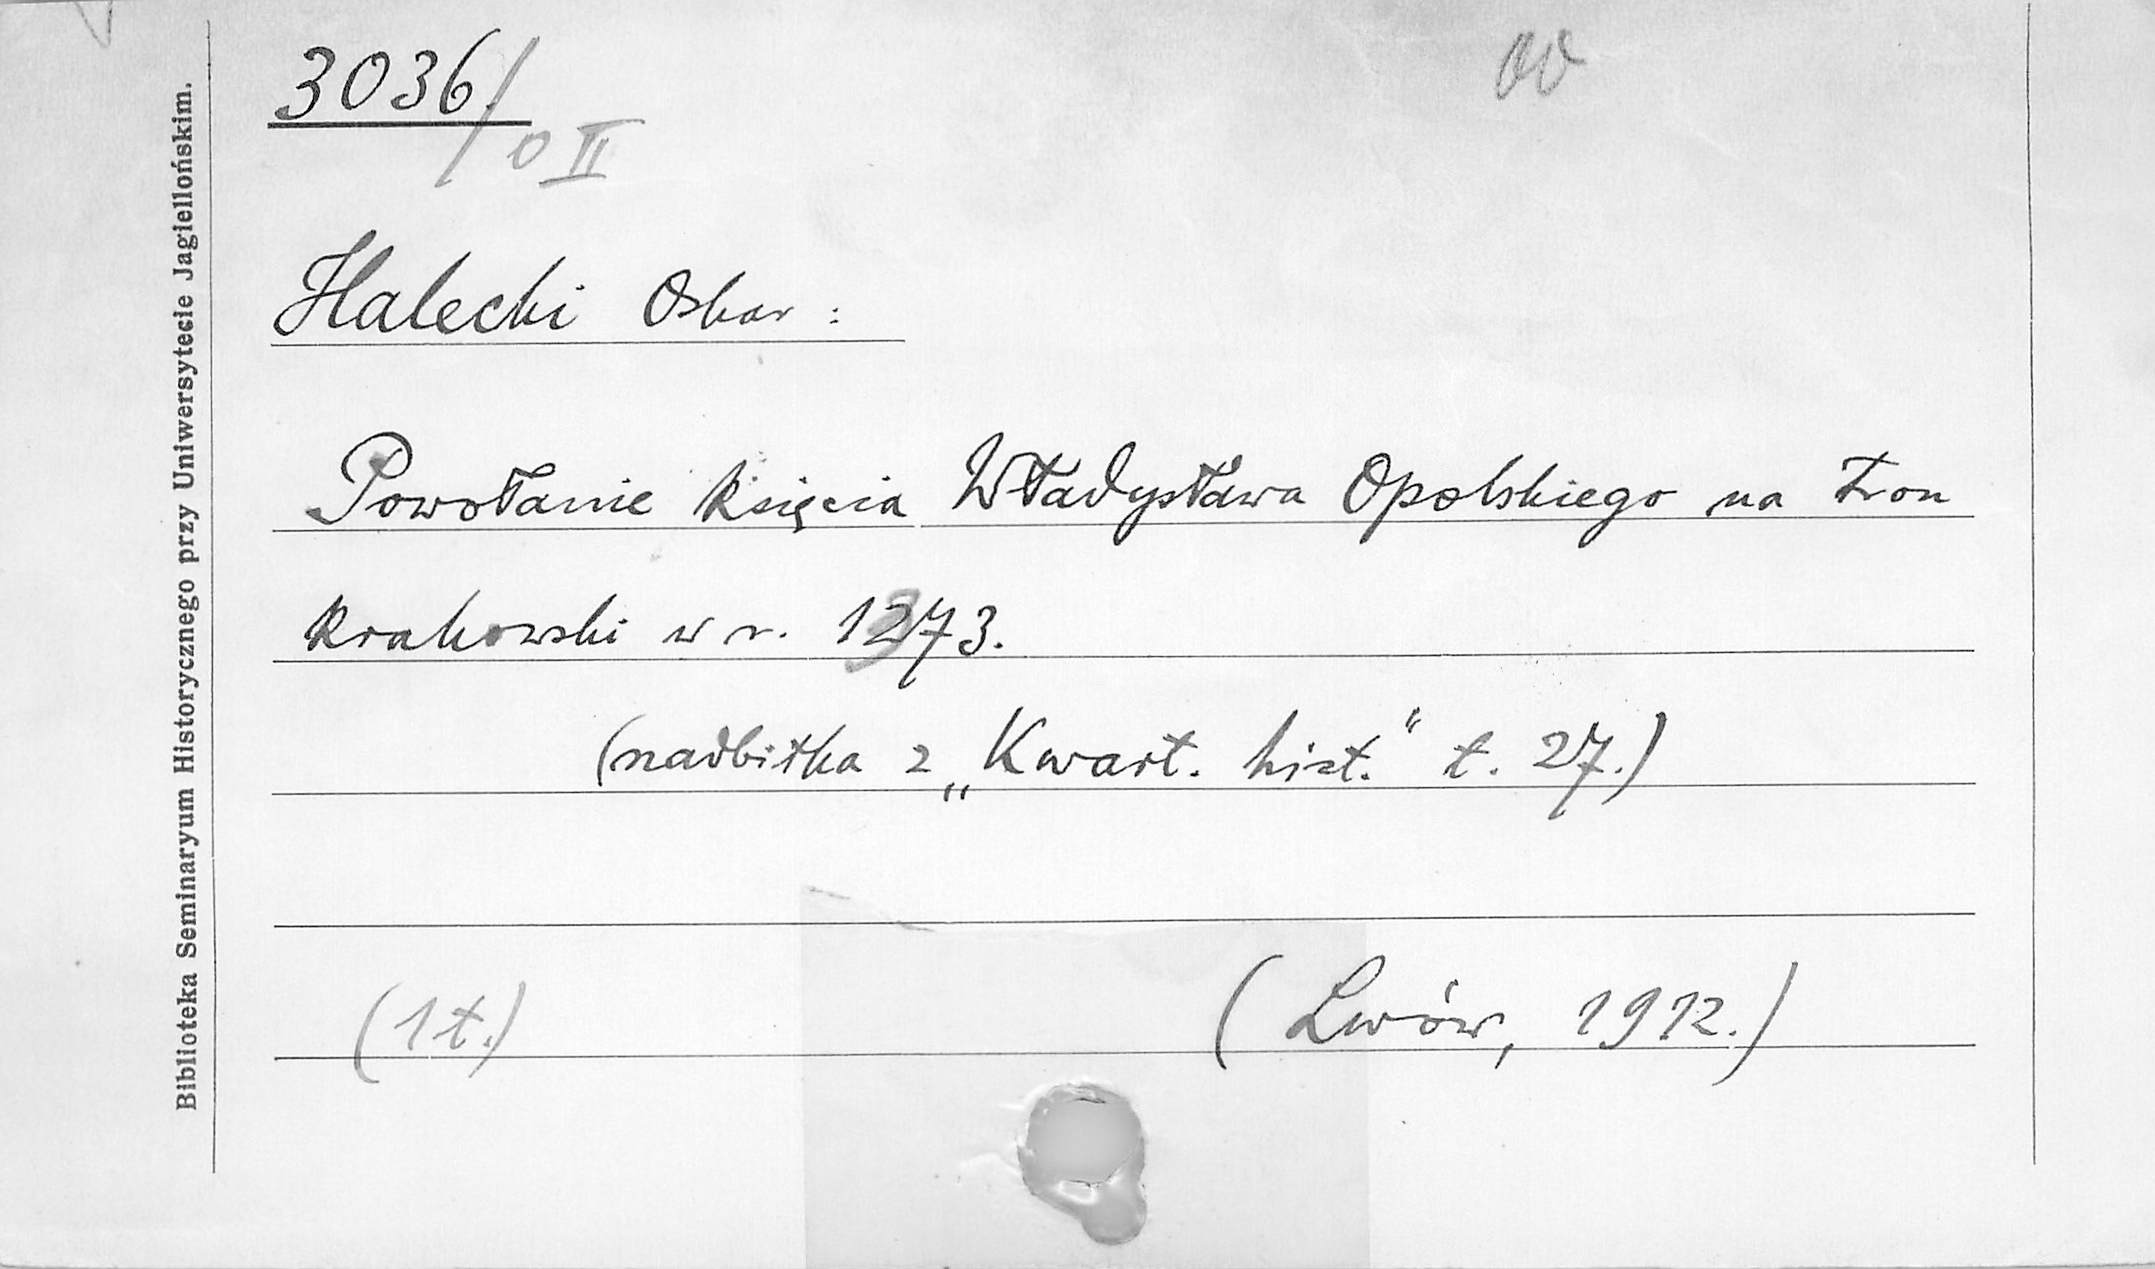 3036/
0 II
Halecki Oskar:
Powołanie księcia Władysława Opolskiego na tron
krakowski w r. 1273.
(nadbitka z „Kwart. hist.“ t. 27.)
(1 t.)
(Lwów, 1912.)
Biblioteka Seminaryum Historycznego przy Uniwersytecie Jagiellońskim.